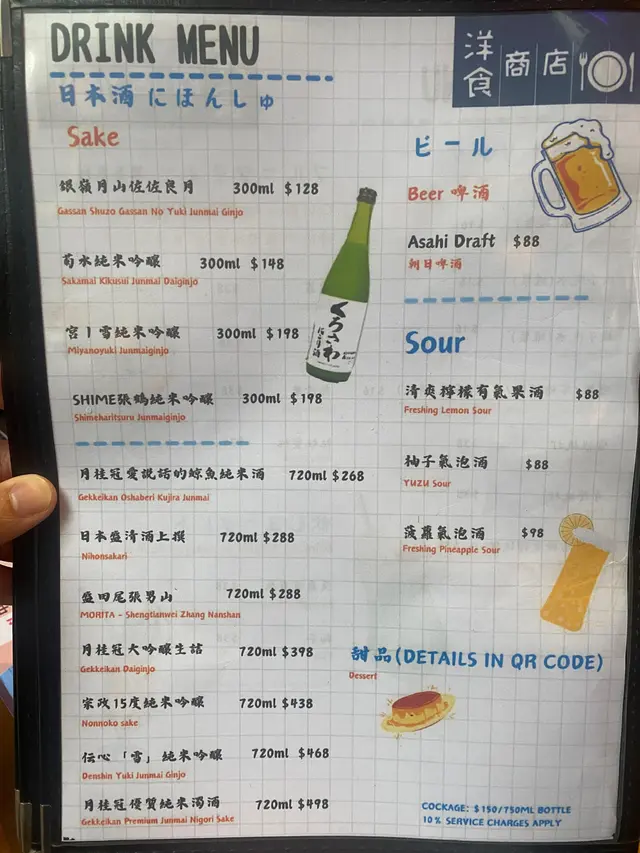 DRINK MENU
日本酒 にほんしゅ
Sake
銀嶺月山佐佐良月 300ml $128
Gassan Shuzo Gassan No Yuki Junmai Ginjo
菊水純米吟釀 300ml $148
Sakamai Kikusui Junmai Daiginjo
宮丨雪純米吟釀 300ml $198
Miyanoyuki Junmaiginjo
SHIME張鶴純米吟釀 300ml $198
Shimeharitsuru Junmaiginjo
月桂冠愛説話的鯨魚純米酒 720ml $268
Gekkeikan Oshaberi Kujira Junmai
日本盛清酒上撰 720ml $288
Nihonsakari
盛田尾張男山 720ml $288
MORITA - Shengtianwei Zhang Nanshan
月桂冠大吟釀生詰 720ml $398
Gekkeikan Daiginjo
宗政15度純米吟釀 720ml $438
Nonnoko sake
伝心「雪」純米吟釀 720ml $468
Denshin Yuki Junmai Ginjo
月桂冠優質純米濁酒 720ml $498
Gekkeikan Premium Junmai Nigori Sake
くろさわ
にごり酒
洋食商店
ビール
Beer 啤酒
Asahi Draft $88
朝日啤酒
Sour
清爽檸檬有氣果酒 $88
Freshing Lemon Sour
柚子氣泡酒 $88
YUZU Sour
菠蘿氣泡酒 $98
Freshing Pineapple Sour
甜品(DETAILS IN QR CODE)
Dessert
COCKAGE: $150/750ML BOTTLE
10% SERVICE CHARGES APPLY